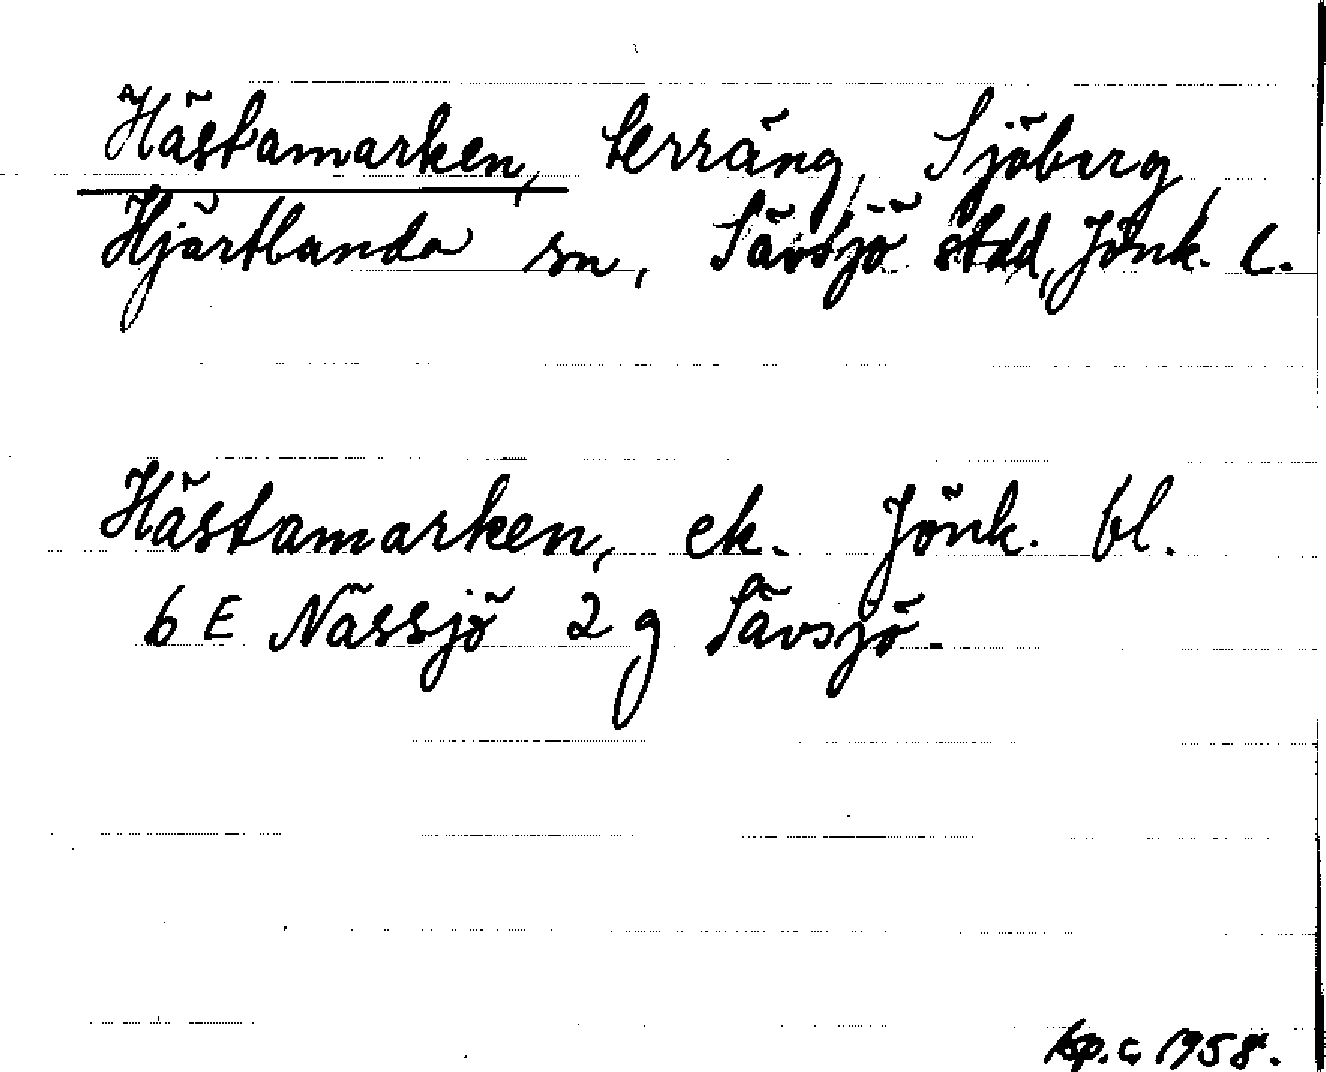 Hästamarken, terräng, Sjöberg,
Hjärtlanda sn, Sävsjö stad, Jönk. l.
Hästamarken, ek. Jönk. bl.
6 E Nässjö 2 g Sävsjö.
kp. c 1958.